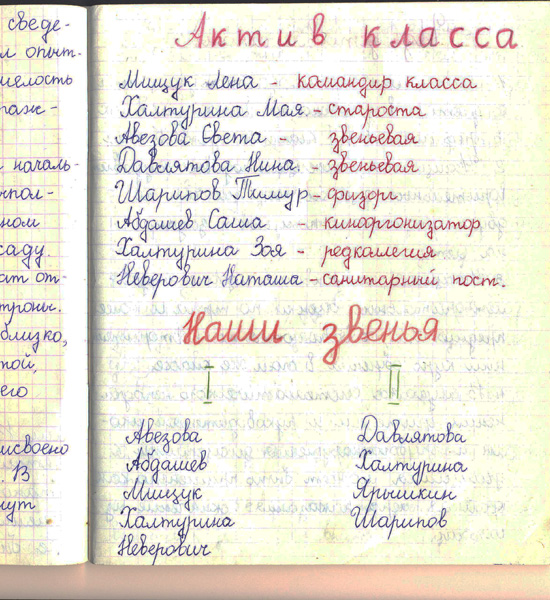 сведе-
опыт-
мелость
таж-
началь-
ном
саду.
ат от-
троны.
близко,
той,
его
исвоено
В
нут
Актив класса
Мищук Лена - командир класса
Халтурина Мая - староста
Авезова Света - звеньевая
Давлятова Нина - звеньевая
Шарипов Тимур - физорг
Абдашев Саша - киноргонизатор
Халтурина Зоя - редколлегия
Неверович Наташа - санитарный пост.
Наши звенья
I II
Авезова Давлятова
Абдашев Халтурина
Мищук Ярышкин
Халтурина Шарипов
Неверович